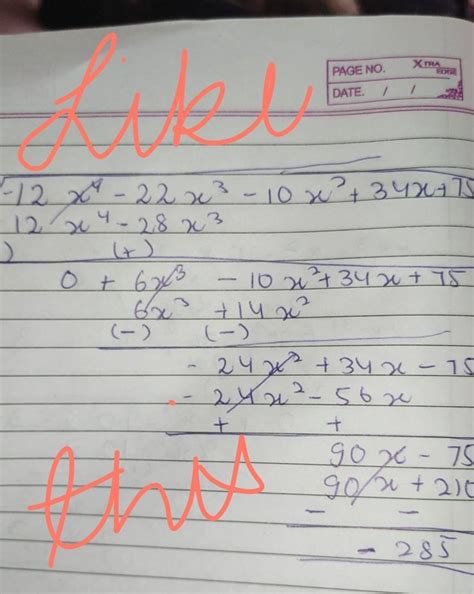 PAGE NO. XTRA EDGE
DATE. / /
Like
-12 x⁴ - 22x³ - 10x² + 34x + 75
12 x⁴ - 28x³
) (+)
0 + 6x³ - 10x² + 34x + 75
6x³ + 14x²
(-) (-)
- 24x² + 34x - 75
- 24x² - 56x
+ +
90x - 75
90x + 210
- -
- 285
this